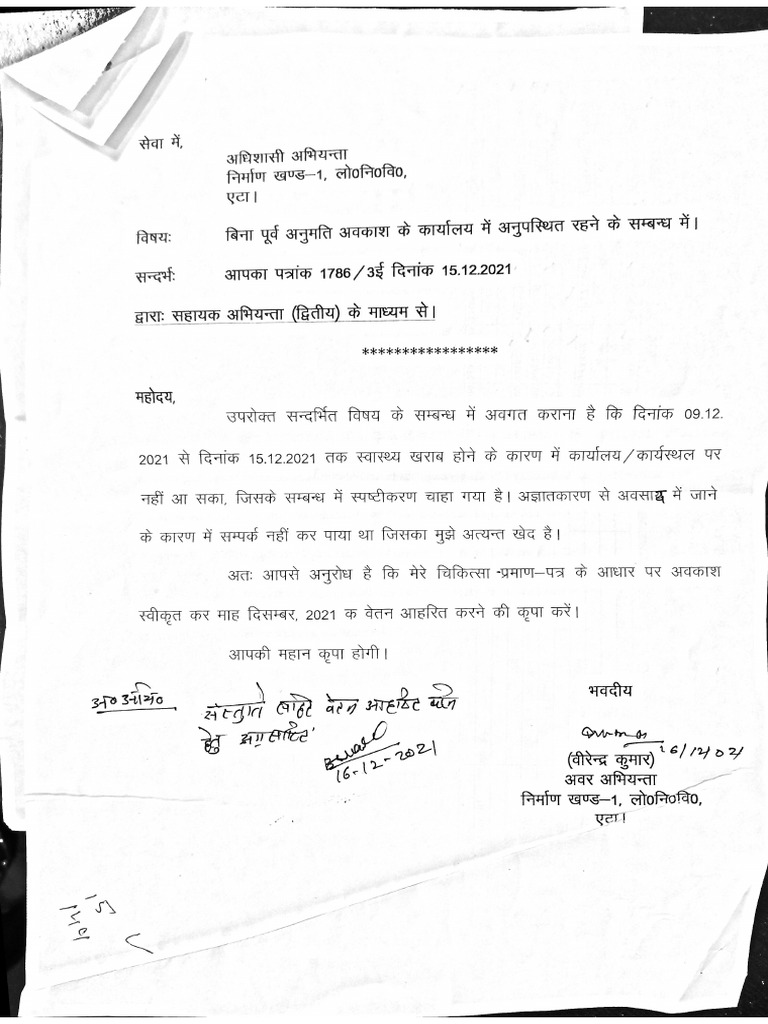 सेवा में,
अधिशासी अभियन्ता
निर्माण खण्ड–1, लो0नि0वि0,
एटा।
विषयः बिना पूर्व अनुमति अवकाश के कार्यालय में अनुपस्थित रहने के सम्बन्ध में।
सन्दर्भः आपका पत्रांक 1786/3ई दिनांक 15.12.2021
द्वाराः सहायक अभियन्ता (द्वितीय) के माध्यम से।
*****************
महोदय,
उपरोक्त सन्दर्भित विषय के सम्बन्ध में अवगत कराना है कि दिनांक 09.12.
2021 से दिनांक 15.12.2021 तक स्वास्थ्य खराब होने के कारण में कार्यालय/कार्यस्थल पर
नहीं आ सका, जिसके सम्बन्ध में स्पष्टीकरण चाहा गया है। अज्ञातकारण से अवसाद में जाने
के कारण में सम्पर्क नहीं कर पाया था जिसका मुझे अत्यन्त खेद है।
अतः आपसे अनुरोध है कि मेरे चिकित्सा -प्रमाण–पत्र के आधार पर अवकाश
स्वीकृत कर माह दिसम्बर, 2021 क वेतन आहरित करने की कृपा करें।
आपकी महान कृपा होगी।
भवदीय
अ० अभि०
संस्तुति सहित वेतन आहरित करने
हेतु अग्रसारित
16-12-2021
16/12021
(वीरेन्द्र कुमार)
अवर अभियन्ता
निर्माण खण्ड–1, लो0नि0वि0,
एटा।